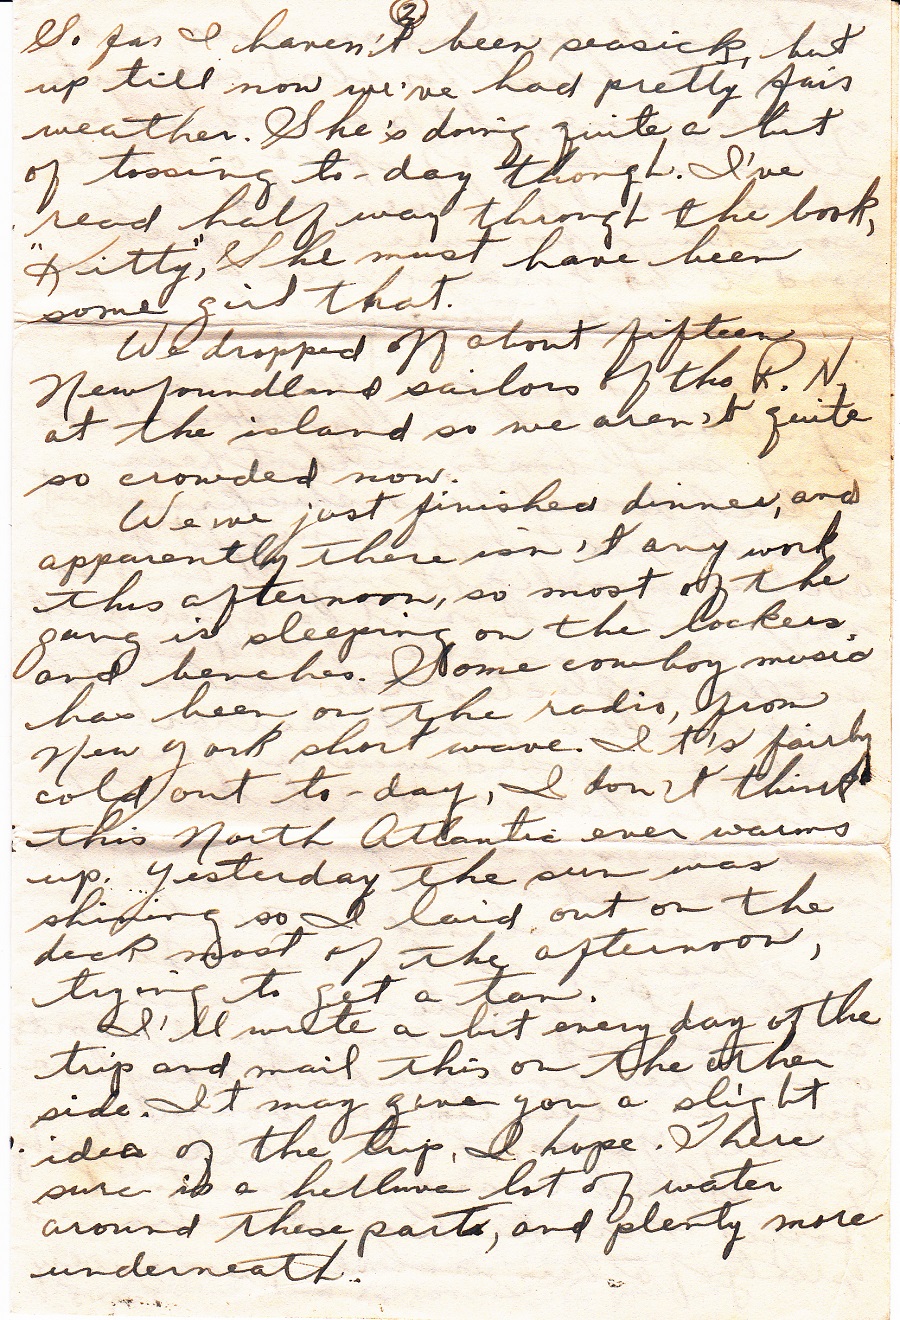 2
So far I haven't been seasick, but
up till now we've had pretty fair
weather. She's doing quite a bit
of tossing to-day though. I've
read half way through the book,
"Kitty", She must have been
some girl that.
We dropped off about fifteen
Newfoundland sailors of the R. N.
at the island so we aren't quite
so crowded now.
We've just finished dinner, and
apparently there isn't any work
this afternoon, so most of the
gang is sleeping on the lockers
and benches. Some cowboy music
has been on the radio, from
New York short wave. It's fairly
cold out to-day, I don't think
this North Atlantic ever warms
up. Yesterday the sun was
shining so I laid out on the
deck most of the afternoon,
trying to get a tan.
I'll write a bit every day of the
trip and mail this on the other
side. It may give you a slight
idea of the trip, I hope. There
sure is a helluva lot of water
around these parts, and plenty more
underneath.